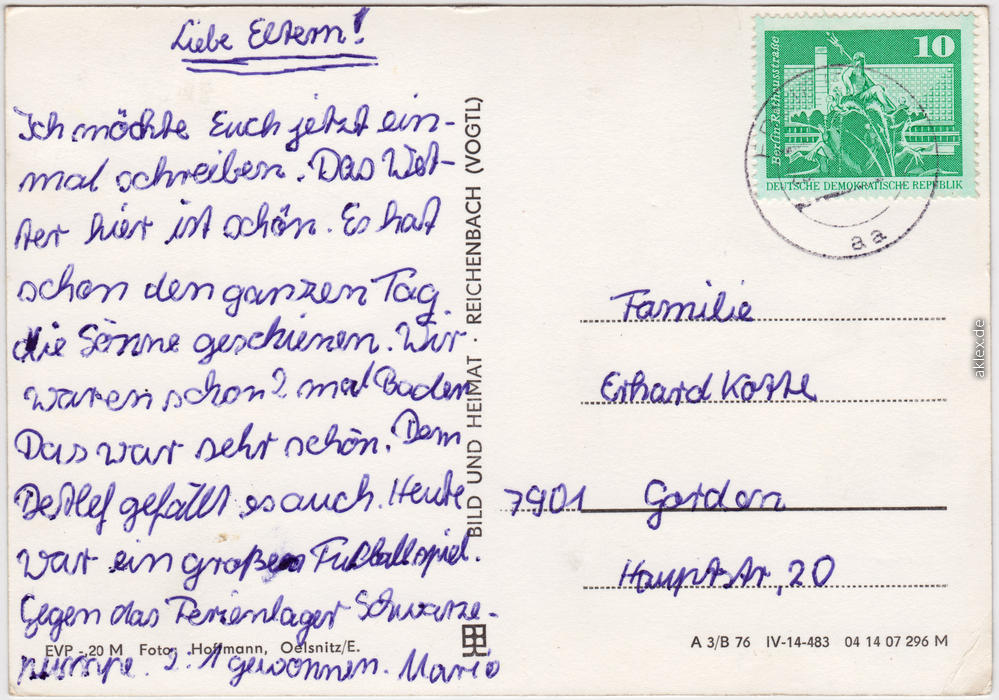 Liebe Eltern!
Ich möchte Euch jetzt ein-
mal schreiben. Das Wet-
ter hier ist schön. Es hat
schon den ganzen Tag
die Sonne geschienen. Wir
waren schon 2 mal Baden
Das war sehr schön. Dem
Detlef gefällt es auch. Heute
war ein großes Fußballspiel.
Gegen das Ferienlager Schwarze-
pumpe. 2:1 gewonnen. Mario
EVP -,20 M Foto: Hoffmann, Oelsnitz/E.
BILD UND HEIMAT · REICHENBACH (VOGTL)
10
Berlin-Rathausstraße
DEUTSCHE DEMOKRATISCHE REPUBLIK
aa
Familie
Erhard Kotte
7901 Gorden
Hauptstr, 20
A 3/B 76 IV-14-483 04 14 07 296 M
aklex.de